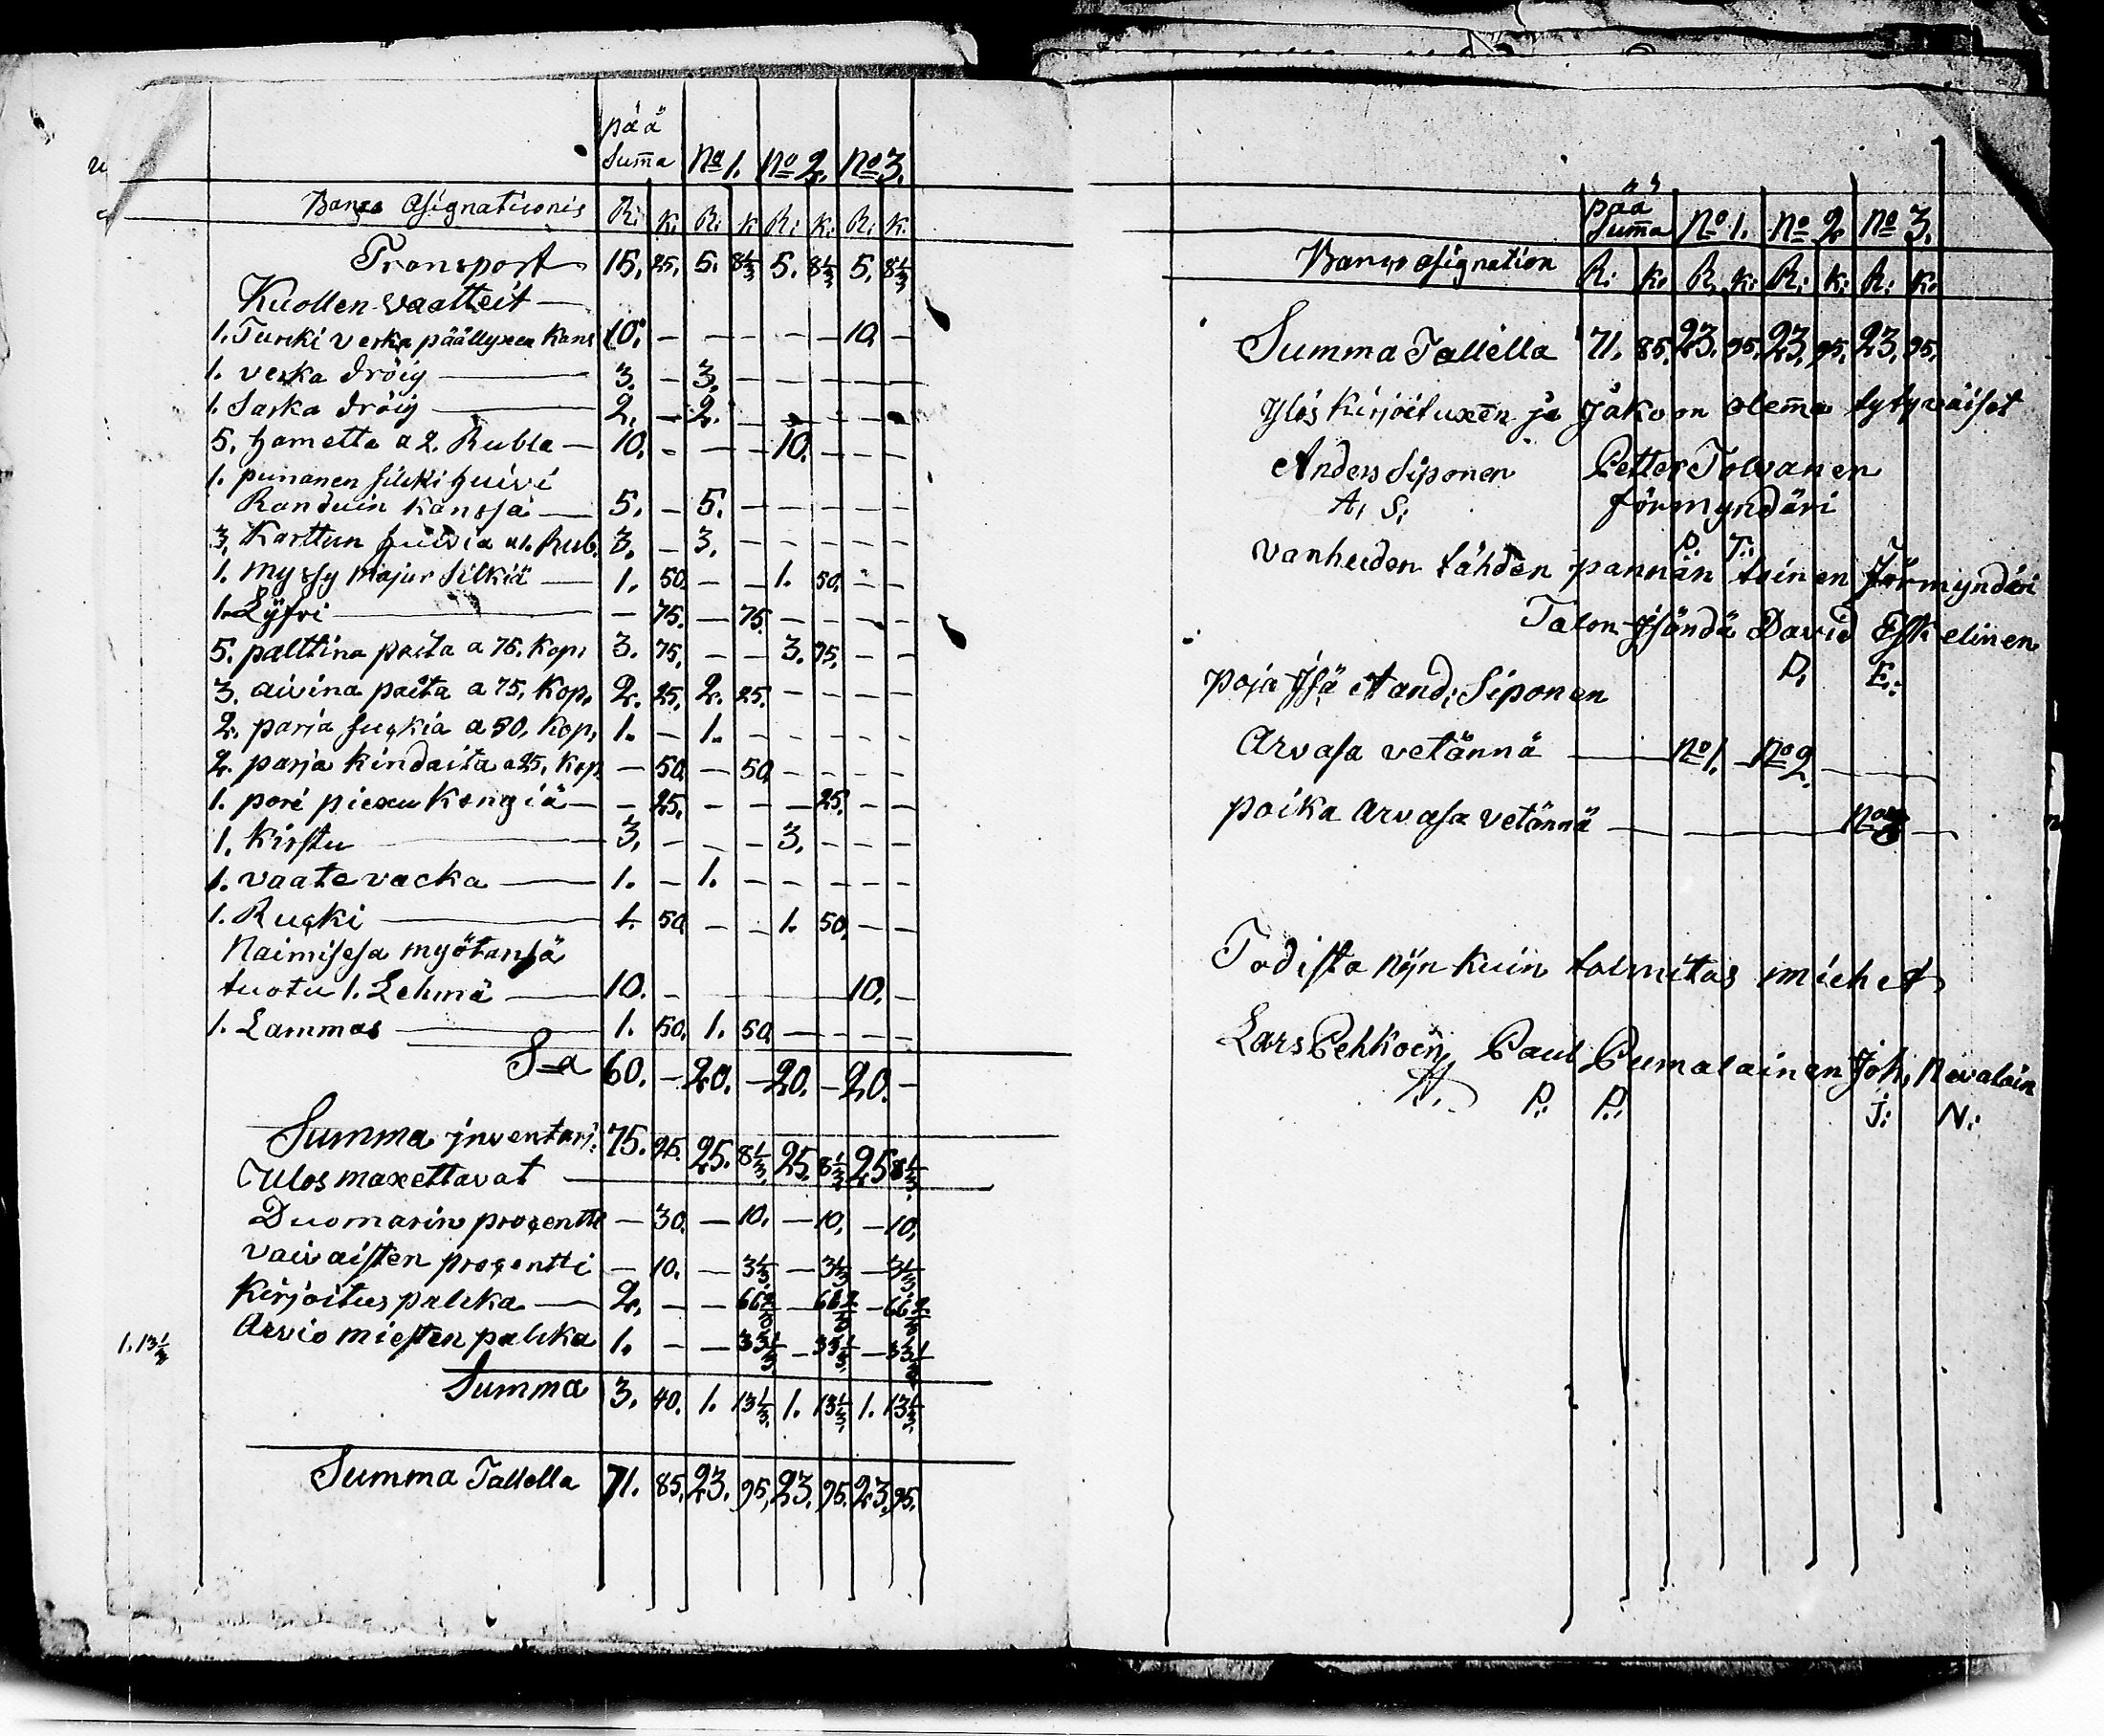 pää
Sum̄a No 1. No 2. No 3.
Banco Asignationis R. K. R. K. R. K. R. K.
Transport 15. 25. 5. 8⅓ 5. 8⅓ 5. 8⅓
Kuollen vaatteit —
1. Turki verka päällyxen kans 10. — — — — — 10. —
1. verka dröig — 3. — 3. — — — — —
1. Sarka dröig — 2. — 2. — — — — —
5. hametta a 2. Rubla — 10. — — — 10. — — —
1. punanen silki huivi
Randuin kanssa — 5. — 5. — — — — —
3. Karttun huivia a 1. Rub. 3. — 3. — — — — —
1. myssy majur silkiä — 1. 50. — — 1. 50. — —
1. Lÿfvi — — 75. — 75. — — — —
5. palttina paita a 75. Kop. 3. 75. — — 3. 75. — —
3. aivina paita a 75. Kop. 2. 25. 2. 25. — — — —
2. parja sukia a 50. Kop. 1. — 1. — — — — —
2. parja kindaita a 25. Kop — 50. — 50. — — — —
1. pari piexu Kengiä — — 25. — — — 25. — —
1. Kirstu — 3. — — — 3. — — —
1. vaate vacka — 1. — 1. — — — — —
1. Rucki — 1. 50 — — 1. 50. — —
Naimisesa myötänsä
tuotu 1. Lehmä — 10. — — 10. —
1. Lammas — 1. 50. 1. 50. — — — —
S-a 60. — 20. — 20. — 20. —
Summa inventari: 75. 25. 25. 8⅓ 25. 8⅓ 25 8⅓
Ulos maxettavat —
Duomarin procentti — 30. — 10. — 10. — 10.
vaivaisten procentti — 10. — 3⅓ — 3⅓ — 3⅓
Kirjoitus palcka — 2. — — 66⅔ — 66⅔ — 66⅔
1.13⅓ Arvio miesten palcka 1. — — 33⅓ — 33⅓ — 33⅓
Summa 3. 40. 1. 13⅓ 1. 13⅓ 1. 13⅓
Summa Tallella 71. 85. 23. 95. 23. 95. 23. 95.
pää
Sum̄a No 1. No 2 No 3.
Banco asignation R. K. R. K. R. K. R. K.
Summa Tallella 71. 85. 23. 95. 23. 95. 23. 95.
Ylös kirjoituxēn ja Jakoon olem̄a tytyväiset
Anders Siponen Petter Tolvanen
A. S. förmyndäri
P. T.
vanhuden tähden pannan toinen förmyndäri
Talon Jsändä David Eskelinen
D. E.
poja Jsä Aand: Siponen
Arvasa vetännä — No 1. — No 2. —
poika Arvasa vetännä — No 3 —
Todista nijn kuin toimitas miehet
Lars Pehkoin Paul Pumalainen Joh. Nevalain
P. P. J: N: